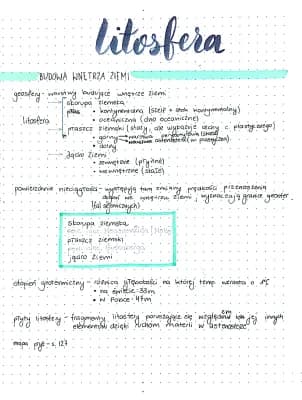 litosfera
BUDOWA WNĘTRZA ZIEMI
geosfery - warstwy budujące wnętrze ziemi
skorupa ziemska
• kontynentalna (szelf + stok kontynentalny)
litosfera
• oceaniczna (dno oceaniczne)
płaszcz ziemski (stały, ale wykazuje cechy c. plastycznego)
• górny
• dolny
jądro ziemi
• zewnętrzne (płynne)
• wewnętrzne (stałe)
powierzchnie nieciągłości - występują tam zmiany prędkości przenoszenia
fal sejsmicznych
wnętrzu ziemi wyznaczają granice geosfer
skorupa ziemska
płaszcz ziemski
jądro ziemi
stopień geotermiczny - różnica głębokości na której temp. wzrasta o 1°C
• na świecie - 33m
• w Polsce - 47m
płyty litosfery - fragmenty litosfery poruszające się względem innych
elementów dzięki ruchom materii w astenosferze
mapa płyt - s. 127